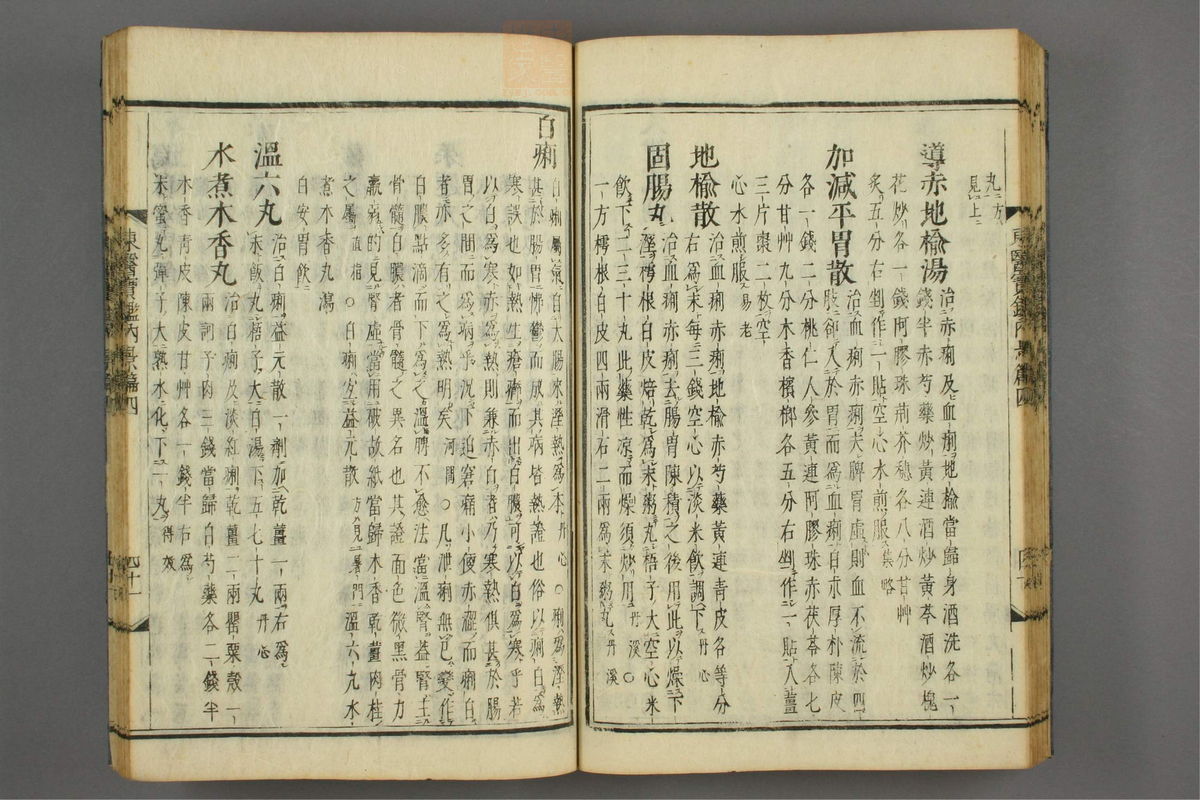 丸方
見上
導赤地楡湯
治赤痢及血痢地楡當歸身酒洗各一
錢半赤芍藥炒黃連酒炒黃芩酒炒槐
花炒各一錢阿膠珠荊芥穗各八分甘艸
炙五分右剉作一貼空心水煎服集略
加減平胃散
治血痢赤痢夫脾胃虛則血不流於四
肢却入於胃而爲血痢白朮厚朴陳皮
各一錢二分桃仁人參黃連阿膠珠赤茯苓各七
分甘艸九分木香檳榔各五分右剉作一貼入薑
三片棗二枚空
心水煎服易老
地楡散
治血痢赤痢地楡赤芍藥黃連青皮各等分
右爲末每三錢空心以淡米飮調下丹心
固腸丸
治血痢赤痢去腸胃陳積之後用此以燥下
濕樗根白皮焙乾爲末粥丸梧子大空心米
飮下二三十丸此藥性凉而燥須炒用丹溪○
一方樗根白皮四兩滑石二兩爲末粥丸丹溪
白痢
白痢屬氣自大腸來濕熱爲本丹心○痢爲濕熱
甚於腸胃怫鬱而成其病皆熱證也俗以痢白爲
寒誤也如熱生瘡癤而出白膿可以白爲寒乎若
以白爲寒赤爲熱則兼赤白者乃寒熱俱甚於腸
胃之間而爲病乎況下迫窘痛小便赤澀而痢白
者亦多有之爲熱明矣河間○凡泄痢無已變作
白膿點滴而下爲之溫脾不愈法當溫腎盖腎主
骨髓白膿者骨髓之異名也其證面色微黑骨力
羸弱的見腎虛當用破故紙當歸木香乾薑肉桂
之屬直指○白痢宜益元散方見暑門溫六丸水
煮木香丸瀉
白安胃飮
溫六丸
治白痢益元散一劑加乾薑一兩右爲
末飯丸梧子大白湯下五七十丸丹心
水煮木香丸
治白痢及淡紅痢乾薑二兩罌粟殼一
兩訶子肉三錢當歸白芍藥各二錢半
木香青皮陳皮甘艸各一錢半右爲
末蜜丸彈子大熱水化下一丸得效
東醫寶鑑內景篇四
四十一